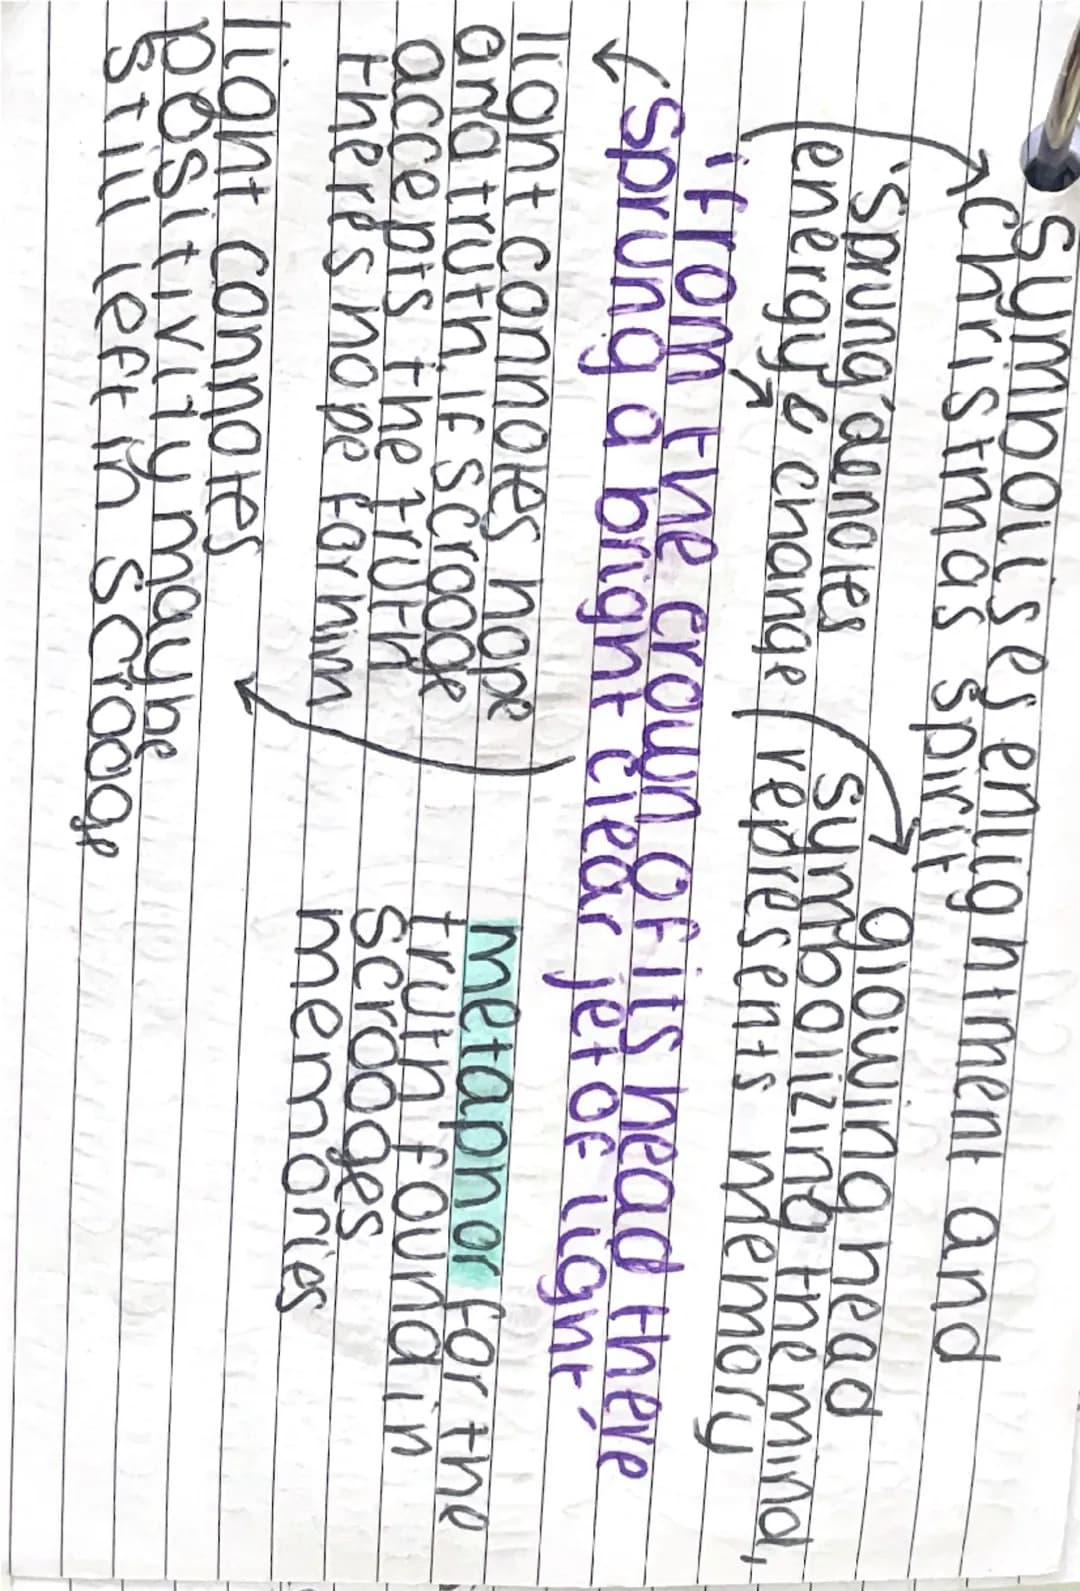 Symbolises enlightment and
christmas spirit
'sprung' denotes
energy & change
glowing head
symbolizing the mind,
represents memory
'from the crown of its head there
sprung a bright clear jet of light'
light connotes hope
and truth. If scrooge
accepts the truth
theres hope for him
metaphor for the
truth found in
scrooges
memories
light connotes
positivity maybe
still left in scrooge